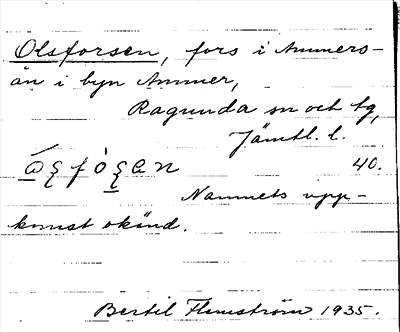 Olsforsen, fors i Ammers-
ån i byn Ammer,
Ragunda sn och tg,
Jämtl. l.
40.
Namnets upp-
komst okänd.
Bertil Flemström 1935.